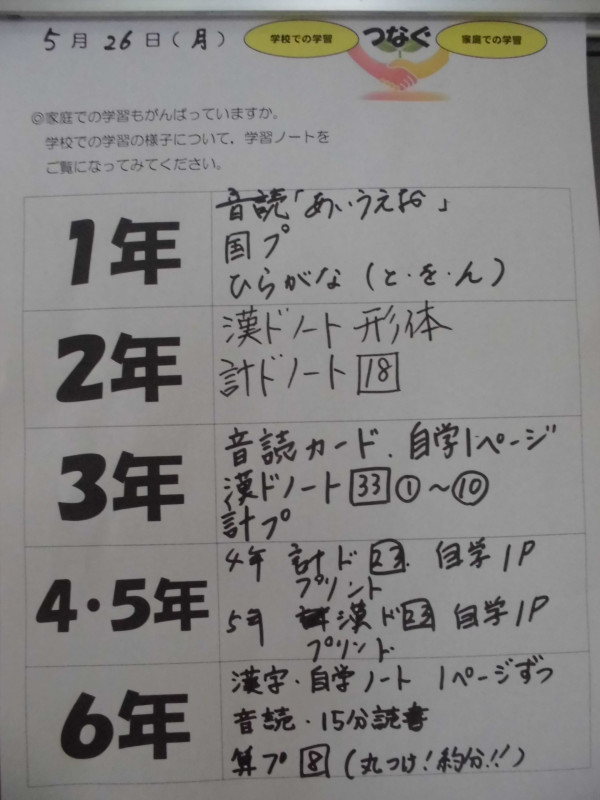 5月26日(月)
学校での学習 つなぐ 家庭での学習
◎家庭での学習もがんばっていますか。
学校での学習の様子について、学習ノートを
ご覧になってみてください。
1年
音読「あいうえお」
国プ
ひらがな(と・を・ん)
2年
漢ドノート 形体
計ドノート 18
3年
音読カード、自学1ページ
漢ドノート 33 ①〜⑩
計プ
4・5年
4年 計ド 23. 自学1P
プリント
5年 漢ド 23 自学1P
プリント
6年
漢字・自学ノート 1ページずつ
音読・15分読書
算プ 8 (丸つけ!約分!!)